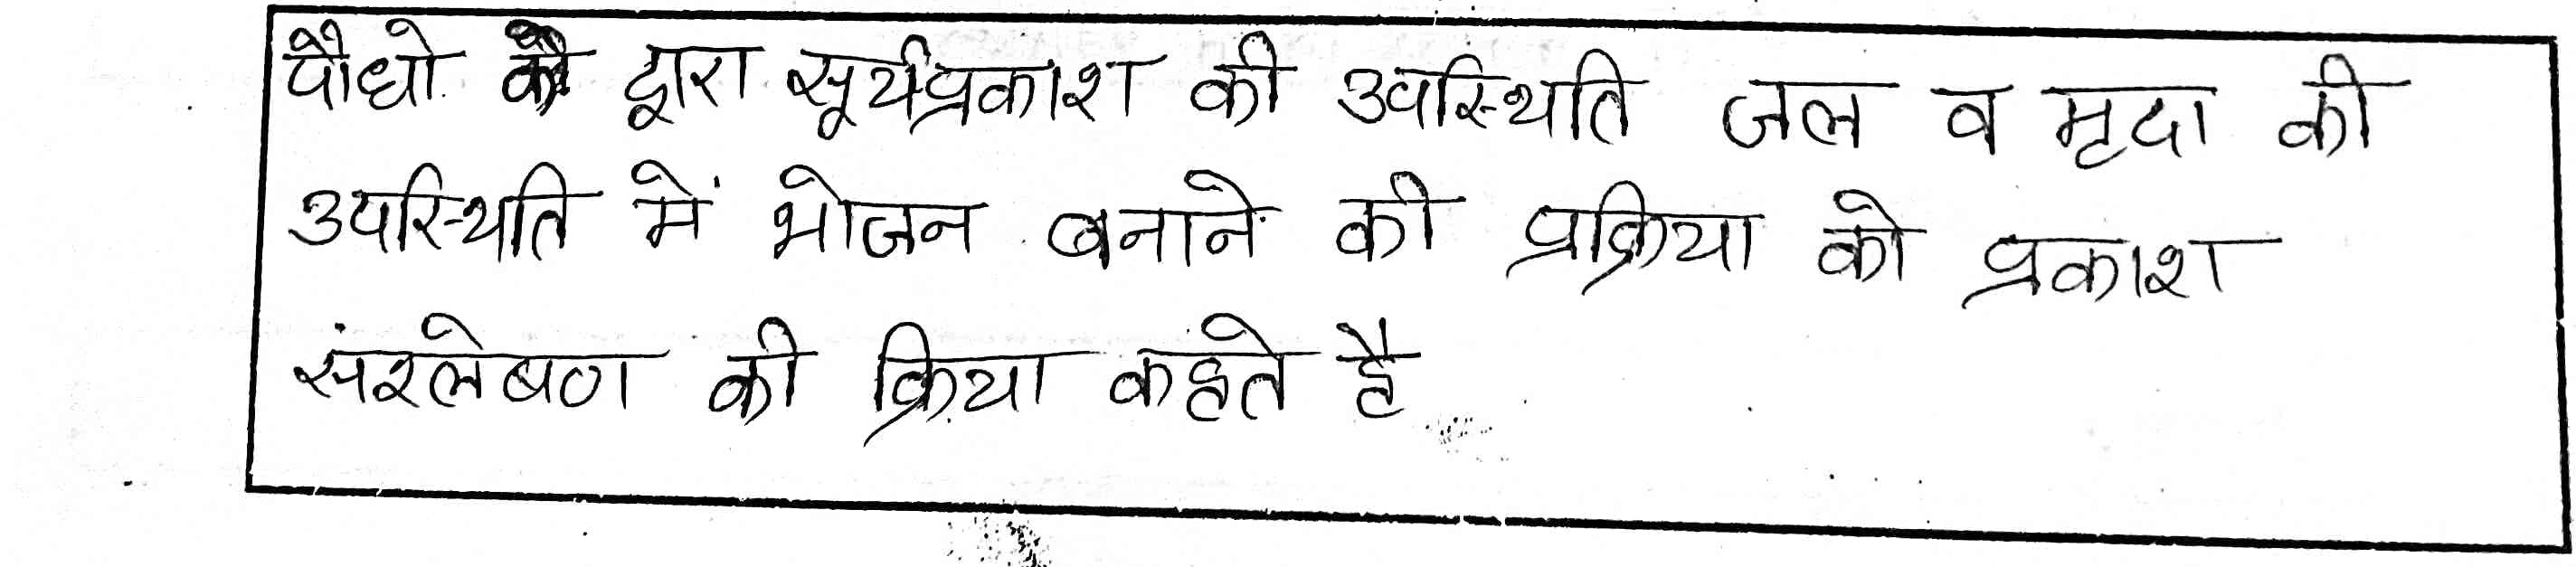 पौधो के द्वारा सूर्यप्रकाश की उपस्थिति जल व मृदा की
उपस्थिति में भोजन बनाने की प्रक्रिया को प्रकाश
संश्लेषण की क्रिया कहते है